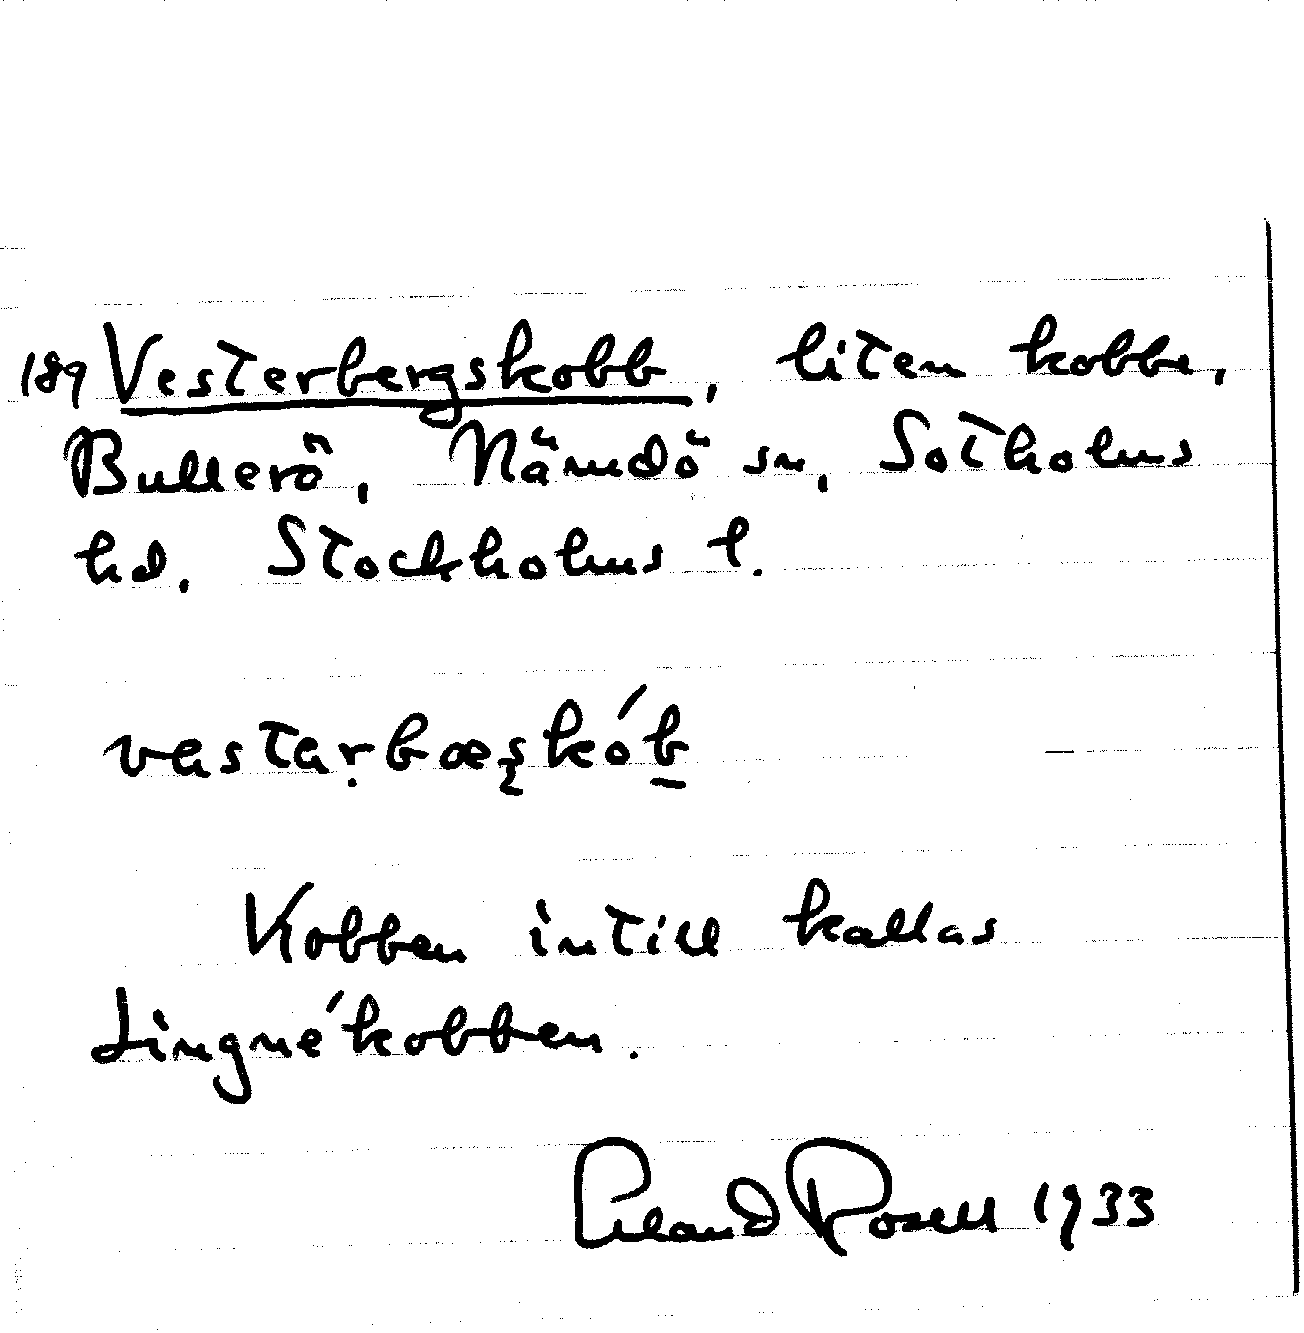 189 Vesterbergskobb, liten kobbe,
Bullerö, Nämdö sn, Sotholms
hd. Stockholms l.
vastaṛbæşkób̲
Kobben intill kallas
Lingnékobben.
Erland Rosell 1933